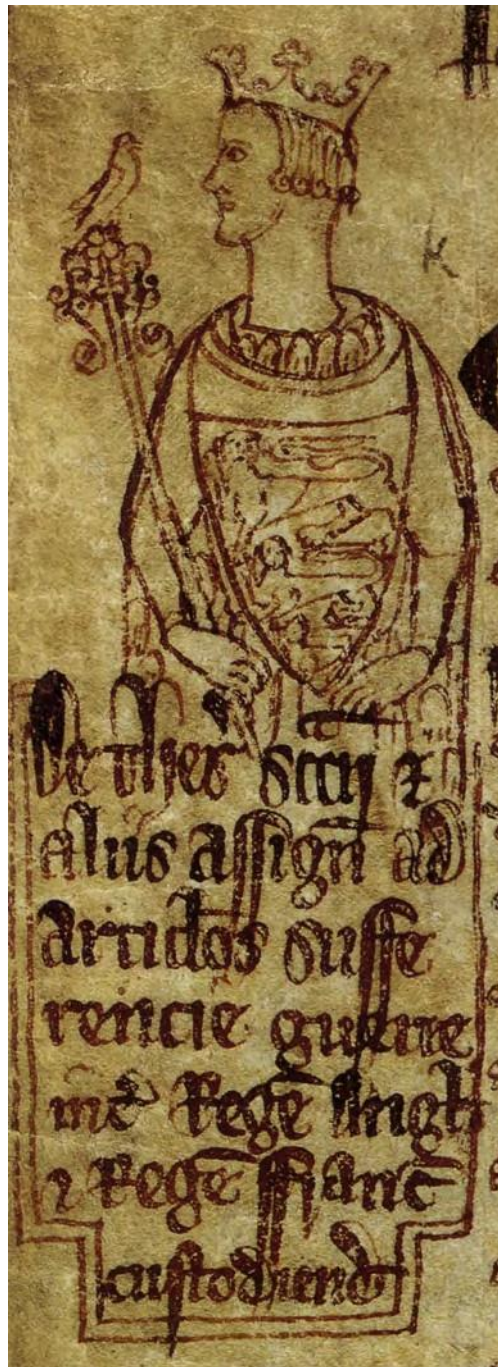 De Thes' sccij ⁊
aliis assign ad
articlos suffe
rencie guerre
int' Regē Angl
⁊ Regē ffranc
custodiend